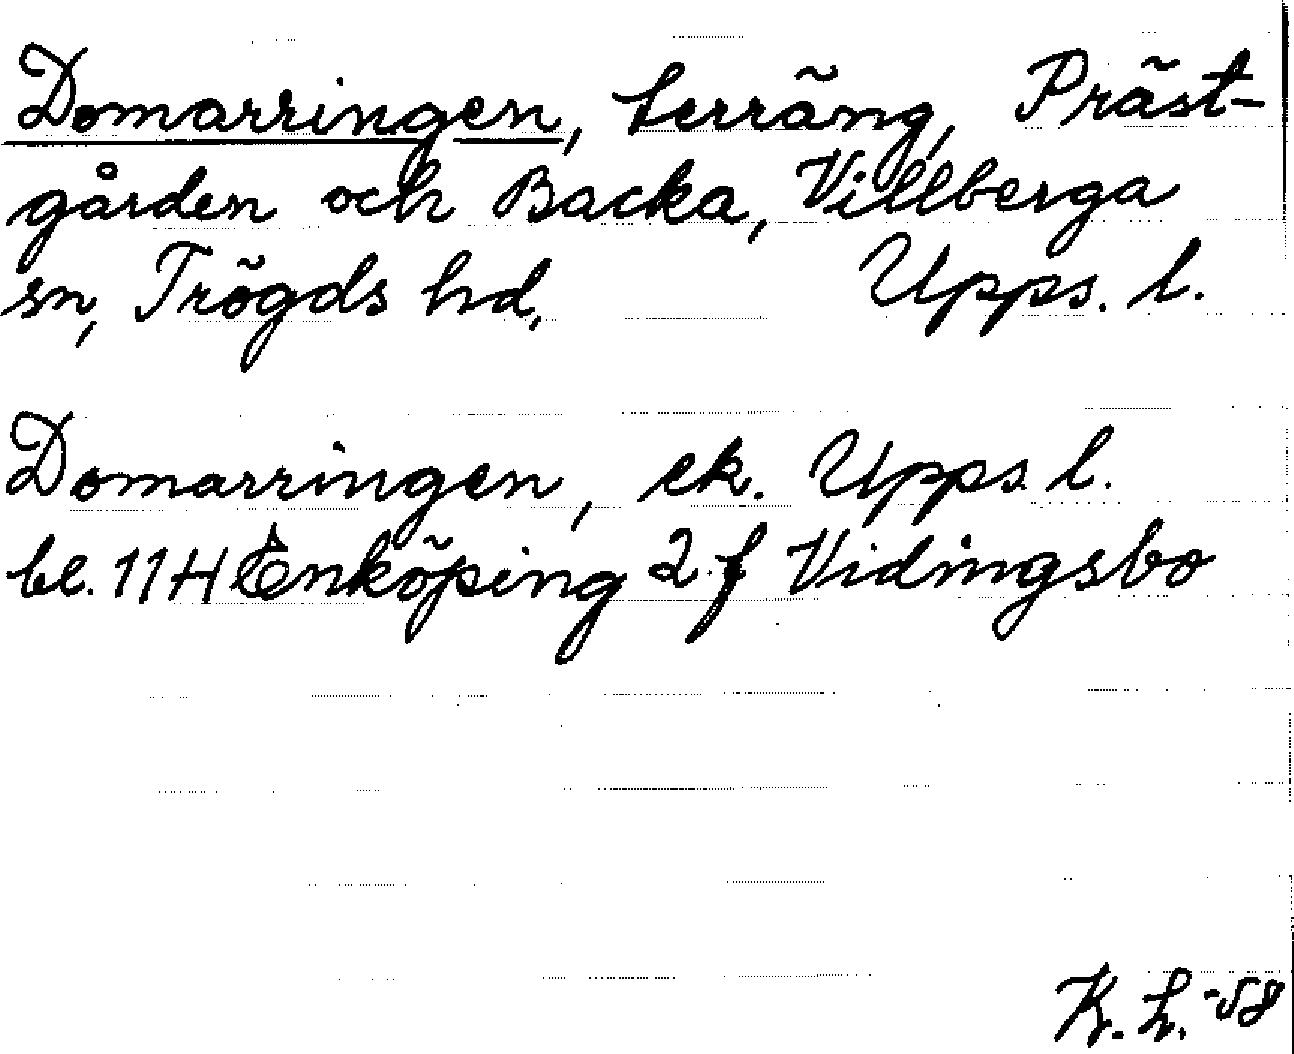 Domarringen, terräng, Präst-
gården och Backa, Villberga
sn, Trögds hd, Upps. l.
Domarringen, ek. Upps l.
bl. 11 H Enköping 2 f Vidingsbo
K. L. -58